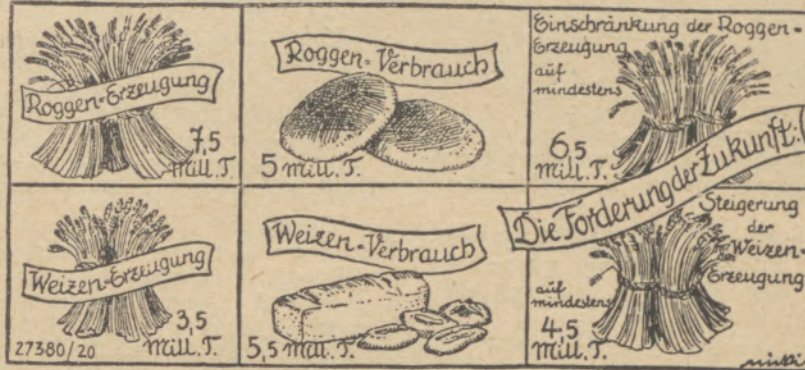 Roggen-Erzeugung
7,5
Mill. T.
Roggen-Verbrauch
5 Mill. T.
Einschränkung der Roggen-
Erzeugung
auf
mindestens
6,5
Mill. T.
Die Forderung der Zukunft:
Weizen-Erzeugung
3,5
Mill. T.
27380/20
Weizen-Verbrauch
5,5 Mill. T.
Steigerung
der
Weizen-
Erzeugung
auf
mindestens
4,5
Mill. T.